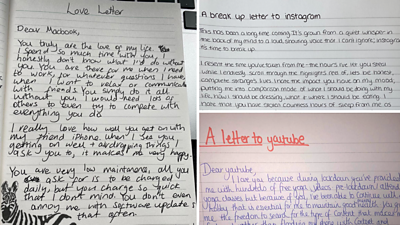 Love Letter
Dear Macbook,
You truly are the love of my life. I
spend so much time with you, I
honestly don't know what I'd do without
you. You are there for me when I need
to work, for whatever questions I have
when I want to relax or communicate
with friends. You simply do it all.
Without you I would need lots of
others to even try to compete with
everything you do.
I really love how well you get on with
my friend iPhone. When I see you
getting on well & airdropping things
I ask you to, it makes me very happy.
You are very low maintenance, all you
ask for is to be charged
daily, but you charge so quick
that I don't mind. You don't even
annoy me with software updates
that often.
A break up letter to instagram
This has been a long time coming. It's grown from a quiet whisper in
the back of my mind to a loud, snoring voice that I can't ignore; instagram
it's time to break up.
I resent the time you've taken from me - the hours I've lost to you
while I endlessly scroll through the highlights reel of, let's be honest,
complete strangers' lives. I hate the impact you have on my mood,
putting me into comparison mode of what I should be doing with my
life, how I should be dressing, what & where I should be eating. I
hate that you have stolen countless hours of sleep from me as
A letter to youtube
Dear youtube,
I love you because during lockdown you've provided
me with hundreds of free yoga videos. Pre-lockdown I attended
yoga classes but because of you, I've been able to continue with